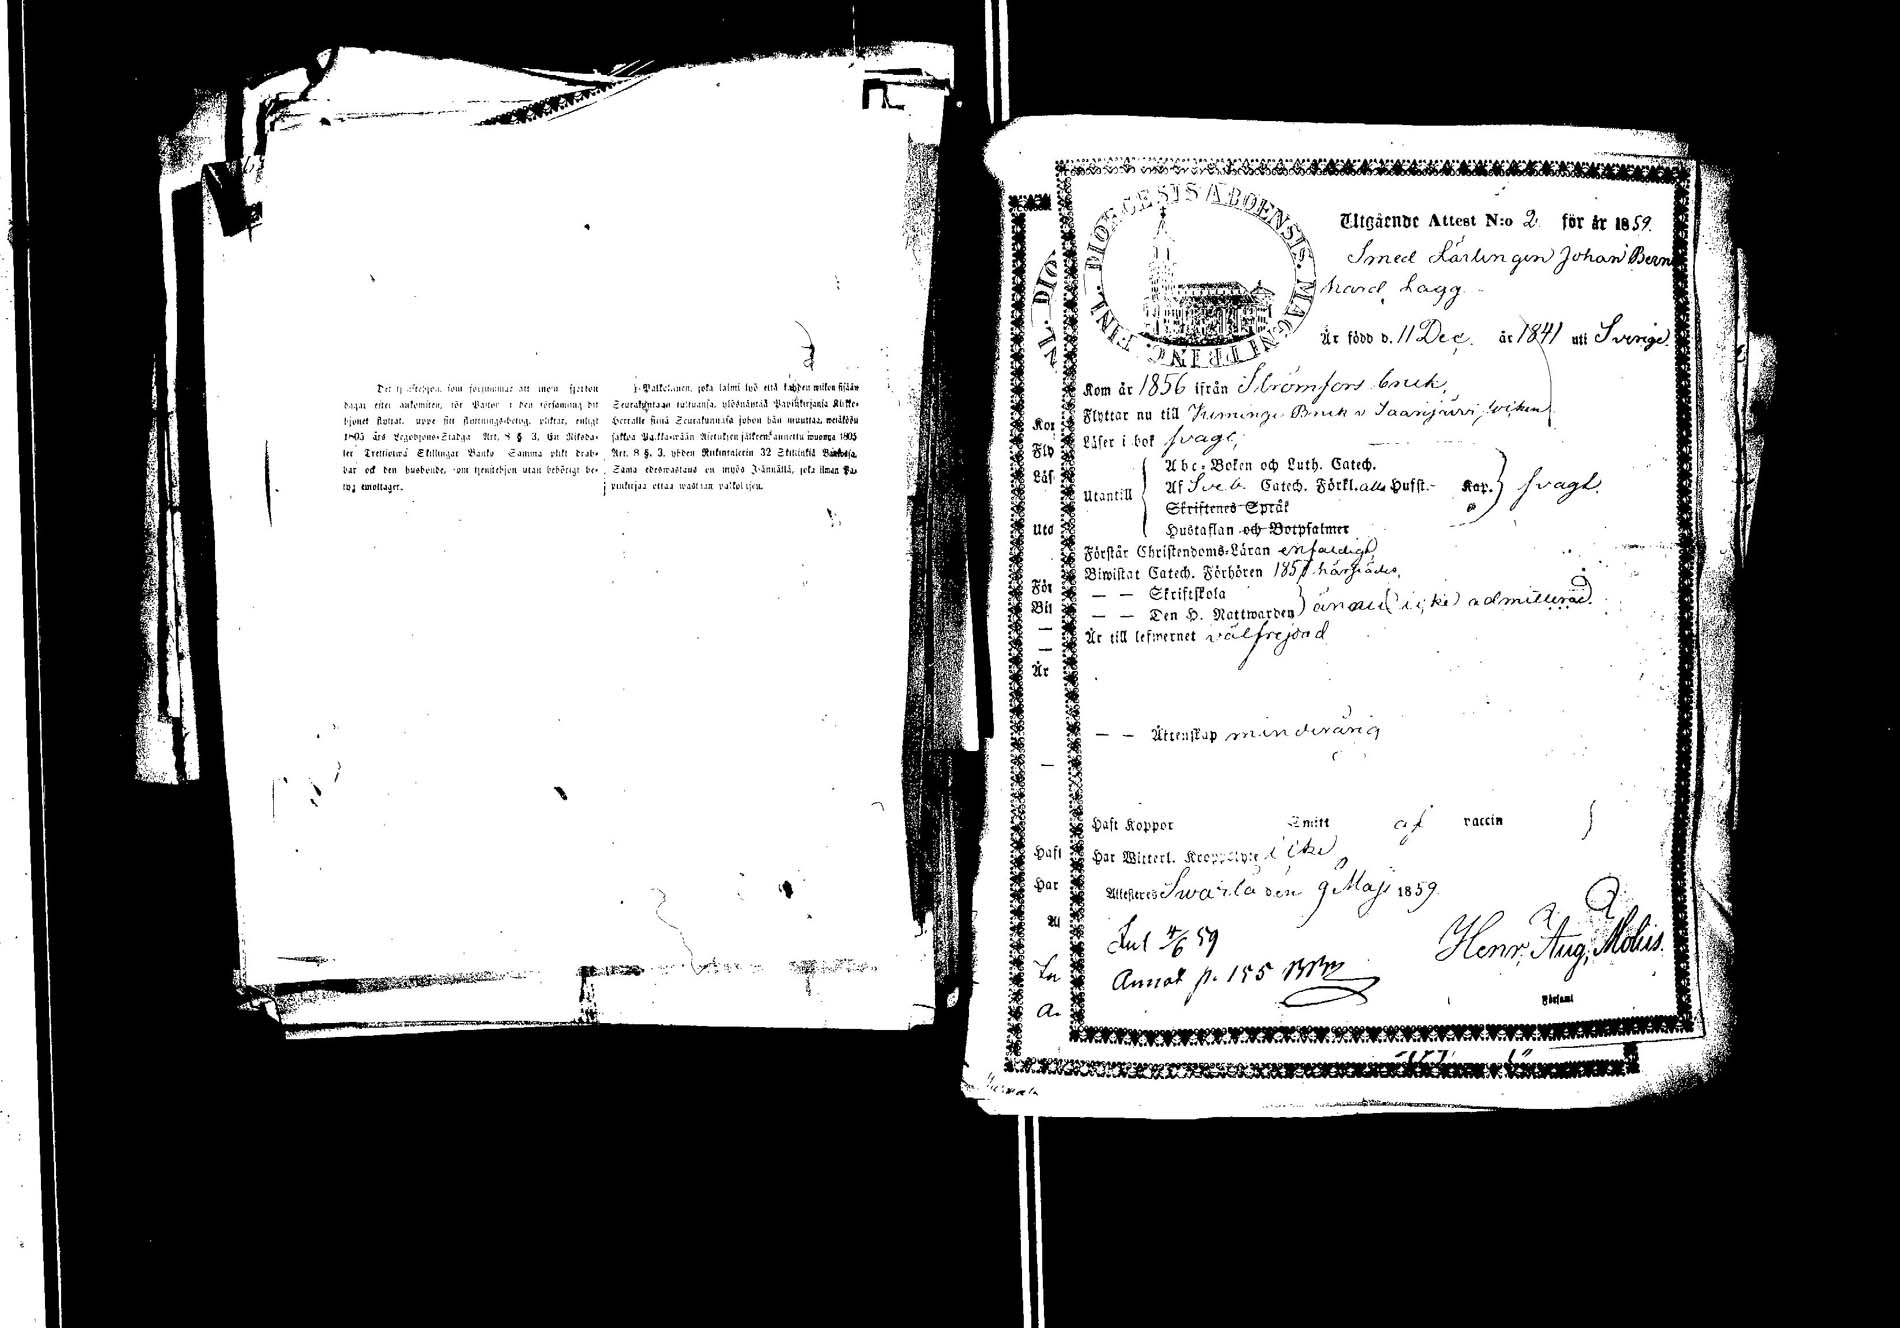 Det tjenstehjon, som försummar att inom fjorton
dagar efter ankomsten, för Pastor i den församling dit
hjonet flyttat, uppte sitt flyttnings-betyg, pliktar, enligt
1805 års Legohjons-Stadga Art. 8 § 3, En Riksda-
ler Trettiotwå Skillingar Banko. Samma plikt drab-
bar ock den husbonde, som tjenstehjon utan behörigt be-
tyg emottager.
Palkollinen, joka laimi lyö että kahden wiikon sisään
Seurakuntaan tultuansa, ylösnäyttää Papinkirjansa Kirkko-
Herralle siinä Seurakunnasa johon hän muuttaa, wetäköön
sakkoa Palkkawään Aſetuksen jälkeen annettu wuonna 1805
Art. 8 §. 3, yhden Riikintalerin 32 Skillinkiä Bankosa.
Sama edeswastaus on myös Isännällä, joka ilman Pa-
pinkirjaa ottaa wastaan palkollisen.
FINL. DIOECESIS ABOENSIS. MAGNI PRINC.
Utgående Attest N:o 2 för år 1859.
Smed Lärlingen Johan Bern
hard Lagg
Är född d. 11 Dec. år 1841 uti Sverige
Kom år 1856 ifrån Strömfors bruk,
Flyttar nu till Kiminge Bruk i Saarijärvi
Läser i bok svagt,
Abc-Boken och Luth. Catech.
Utantill Af Sveb. Catech. Förkl. alla Hufst.- Kap. svagt.
Skriftenes Språk
Hustaflan och Botpsalmer
Förstår Christendoms-Läran enfaldigt,
Biwistat Catech. Förhören 1857 härstädes,
— — Skriftskola
— — Den H. Nattwarden ännu icke admitterad.
Är till lefwernet välfrejdad
— — Äktenskap minderårig
Haft Koppor Smitt af vaccin
Har Witterl. Kroppslyte icke
Attesteras Swartå den 9 Maji 1859.
Henr. Aug. Molis.
Jul 4/6 59
Annot p. 155
Församl
NL. DIO
Kor
Fly
Läs
Uta
För
Biw
—
—
Är
—
Haft
Har
At
A.